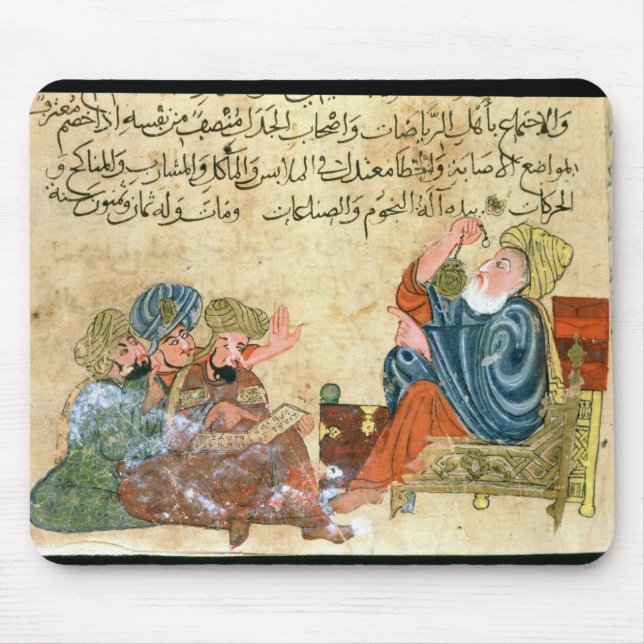 والاجتماع بأهل الرياضات واصحاب الجدل منصف من نفسه اذا خصم معترف
المواضع الاصابة والخطا معتدل في الملابس والمآكل والمشارب والمناكح و
الحركات بيده آلة النجوم والصناعات ومات وله ثمان سنة